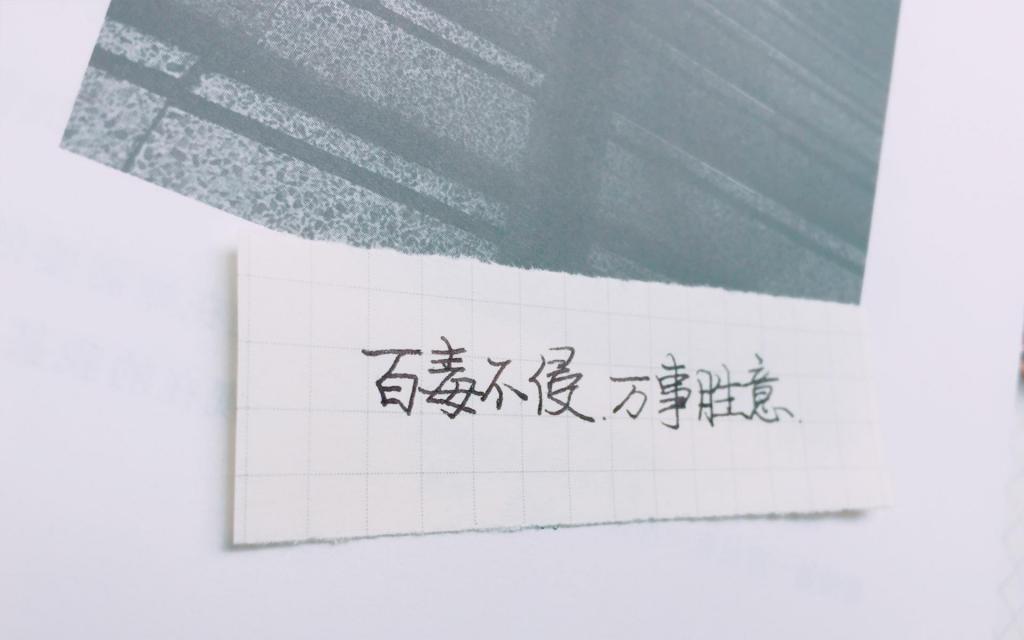 百毒不侵.万事胜意.